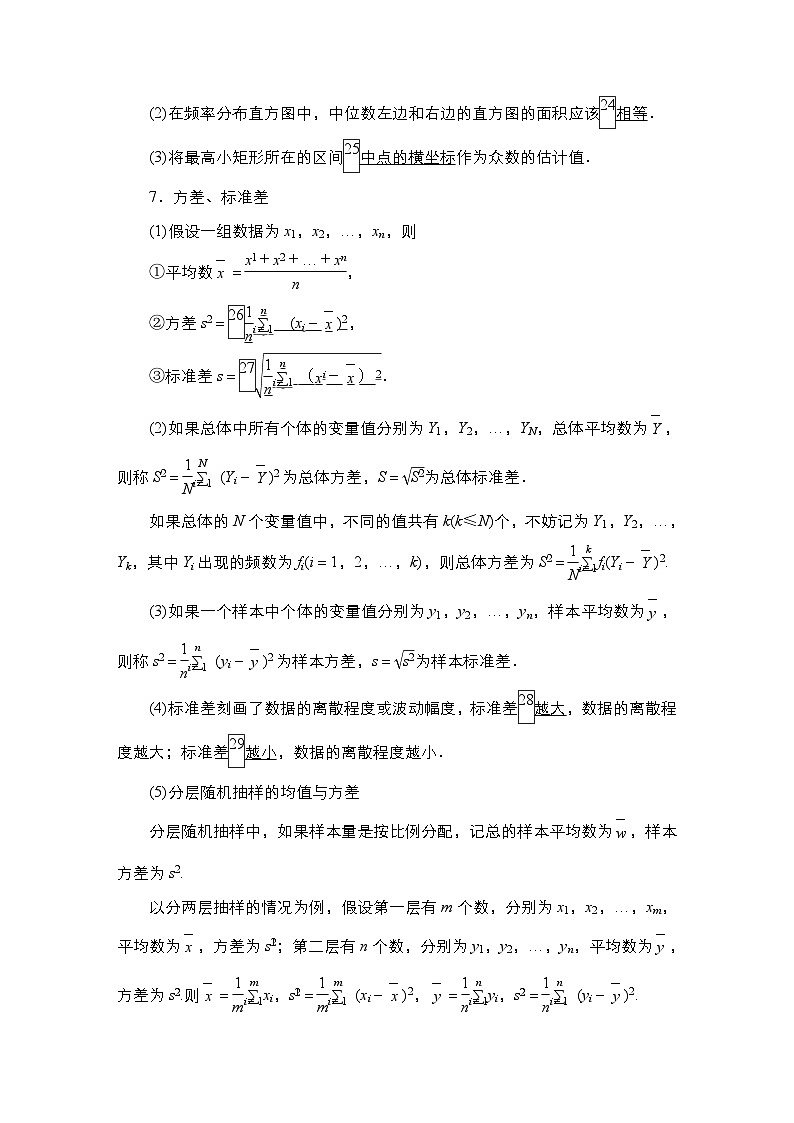 (2)在频率分布直方图中，中位数左边和右边的直方图的面积应该24相等．
(3)将最高小矩形所在的区间25中点的横坐标作为众数的估计值．
7．方差、标准差
(1)假设一组数据为 x1，x2，…，xn，则
①平均数 x̅ ＝(x1＋x2＋…＋xn)/n，
②方差 s2＝26 1/n ∑(i＝1, n) (xi－ x̅ )2，
③标准差 s＝27 √(1/n ∑(i＝1, n) （xi－ x̅ ）2)．
(2)如果总体中所有个体的变量值分别为 Y1，Y2，…，YN，总体平均数为 Y̅ ，
则称 S2＝1/N ∑(i＝1, N) (Yi－ Y̅ )2 为总体方差，S＝√S2为总体标准差．
如果总体的 N 个变量值中，不同的值共有 k(k≤N)个，不妨记为 Y1，Y2，…，
Yk，其中 Yi 出现的频数为 fi(i＝1，2，…，k)，则总体方差为 S2＝1/N ∑(i＝1, k)fi(Yi－ Y̅ )2.
(3)如果一个样本中个体的变量值分别为 y1，y2，…，yn，样本平均数为 y̅ ，
则称 s2＝1/n ∑(i＝1, n) (yi－ y̅ )2 为样本方差，s＝√s2为样本标准差．
(4)标准差刻画了数据的离散程度或波动幅度，标准差28越大，数据的离散程
度越大；标准差29越小，数据的离散程度越小．
(5)分层随机抽样的均值与方差
分层随机抽样中，如果样本量是按比例分配，记总的样本平均数为 w̅ ，样本
方差为 s2.
以分两层抽样的情况为例，假设第一层有 m 个数，分别为 x1，x2，…，xm，
平均数为 x̅ ，方差为 s21；第二层有 n 个数，分别为 y1，y2，…，yn，平均数为 y̅ ，
方差为 s2.则 x̅ ＝1/m ∑(i＝1, m)xi，s21＝1/m ∑(i＝1, m) (xi－ x̅ )2， y̅ ＝1/n ∑(i＝1, n)yi，s2＝1/n ∑(i＝1, n) (yi－ y̅ )2.